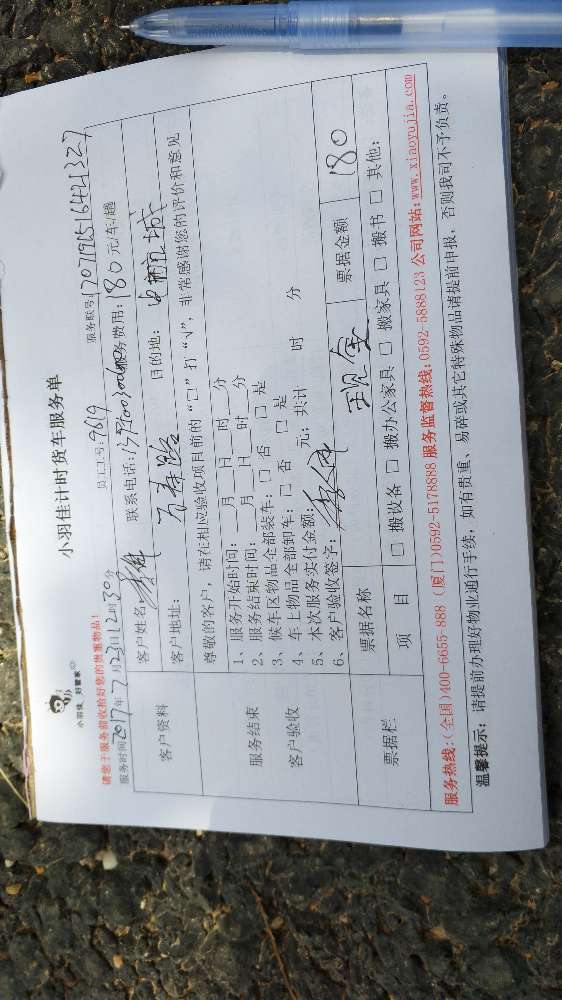 小羽佳计时货车服务单
小羽佳，好管家
请您于服务前收拾好您的贵重物品！
员工工号：9619 服务联号：
服务时间2017年7月23日12时30分
客户资料
客户姓名： 联系电话： 服务费用：180元/车/趟
客户地址： 目的地：
尊敬的客户，请在相应验收项目前的“□”打“√”，非常感谢您的评价和意见
服务结束
客户验收
1、服务开始时间：___月___日___时___分
2、服务结束时间：___月___日___时___分
3、候车区物品全部装车：□ 否 □ 是
4、车上物品全部卸车：□ 否 □ 是
5、本次服务实付金额： 元；共计 时 分
6、客户验收签字：
票据栏
票据名称 现金 票据金额 180
项 目 □ 搬设备 □ 搬办公家具 □ 搬家具 □ 搬书 □ 其他：
服务热线：(全国)400-6655-888 (厦门)0592-5178888 服务监督热线：0592-5888123 公司网站：www.xiaoyujia.com
温馨提示：请提前办理好物业通行手续，如有贵重、易碎或其它特殊物品请提前申报，否则我司不予负责。